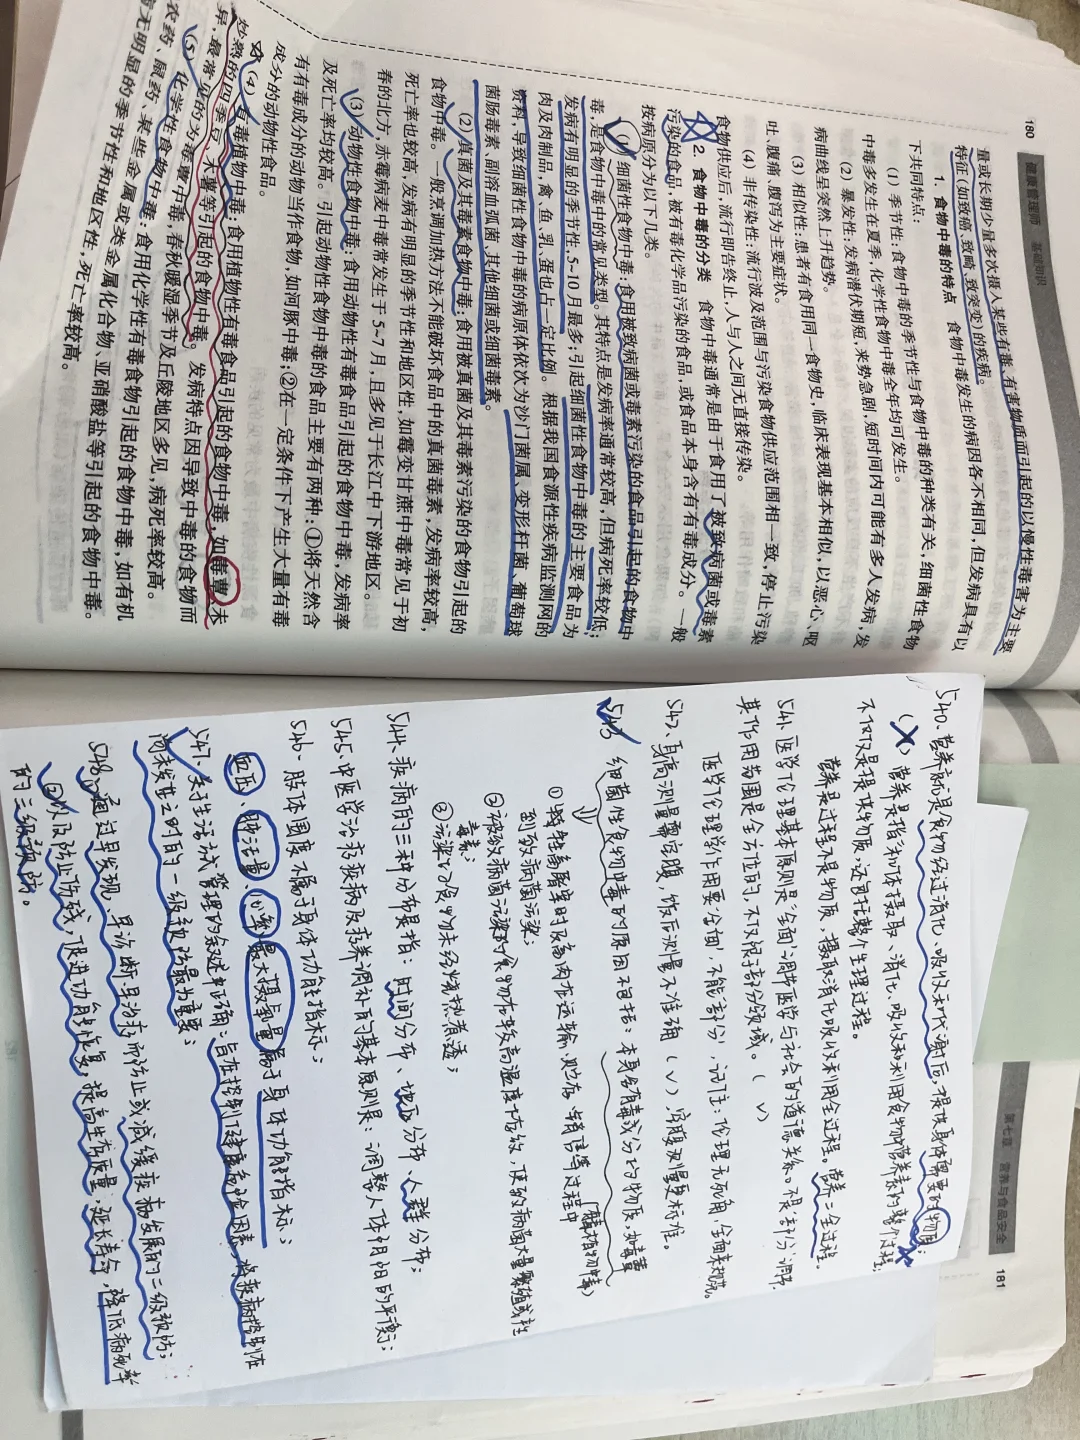 180 健康管理师 基础知识
量或长期少量多次摄入某些有毒、有害物质而引起的以慢性毒害为主要
特征(如致癌、致畸、致突变)的疾病。
1. 食物中毒的特点 食物中毒发生的病因各不相同,但发病具有以
下共同特点:
(1) 季节性:食物中毒的季节性与食物中毒的种类有关,细菌性食物
中毒多发生在夏季,化学性食物中毒全年均可发生。
(2) 暴发性:发病潜伏期短,来势急剧,短时间内可能有多人发病,发
病曲线呈突然上升趋势。
(3) 相似性:患者有食用同一食物史,临床表现基本相似,以恶心、呕
吐、腹痛、腹泻为主要症状。
(4) 非传染性:流行波及范围与污染食物供应范围相一致,停止污染
食物供应后,流行即告终止,人与人之间无直接传染。
2. 食物中毒的分类 食物中毒通常是由于食用了被致病菌或毒素
污染的食品,被有毒化学品污染的食品,或食品本身含有有毒成分。一般
按病原分为以下几类。
(1) 细菌性食物中毒:食用被致病菌或毒素污染的食品引起的食物中
毒,是食物中毒中的常见类型。其特点是发病率通常较高,但病死率较低;
发病有明显的季节性,5~10月最多;引起细菌性食物中毒的主要食品为
肉及肉制品,禽、鱼、乳、蛋也占一定比例。根据我国食源性疾病监测网的
资料,导致细菌性食物中毒的病原体依次为沙门菌属、变形杆菌、葡萄球
菌肠毒素、副溶血弧菌、其他细菌或细菌毒素。
(2) 真菌及其毒素食物中毒:食用被真菌及其毒素污染的食物引起的
食物中毒。一般烹调加热方法不能破坏食品中的真菌毒素,发病率较高,
死亡率也较高,发病有明显的季节性和地区性,如霉变甘蔗中毒常见于初
春的北方,赤霉病麦中毒常发生于5~7月,且多见于长江中下游地区。
(3) 动物性食物中毒:食用动物性有毒食品引起的食物中毒,发病率
及死亡率均较高。引起动物性食物中毒的食品主要有两种:①将天然含
有有毒成分的动物当作食物,如河豚中毒;②在一定条件下产生大量有毒
成分的动物性食品。
(4) 有毒植物中毒:食用植物性有毒食品引起的食物中毒,如毒蕈、未
炒熟的四季豆、木薯等引起的食物中毒。发病特点因导致中毒的食物而
异,最常见的为毒蕈中毒,春秋暖湿季节及丘陵地区多见,病死率较高。
(5) 化学性食物中毒:食用化学性有毒食物引起的食物中毒,如有机
农药、鼠药、某些金属或类金属化合物、亚硝酸盐等引起的食物中毒。
无明显的季节性和地区性,死亡率较高。
第七章 营养与食品安全 181
540. 营养就是食物经过消化、吸收和代谢后,提供身体需要的物质;
(×) 营养是指备体摄取、消化、吸收和利用食物中营养素的整个过程;
不仅仅是提供物质,还包括整个生理过程。
营养是过程不是物质,摄取消化吸收利用全过程。营养=全过程。
541. 医学伦理基本原则是全面调节医学与社会的道德关系。不是部分调节.
其作用范围是全方位的,不仅限于部分领域。(√)
医学伦理学作用要全面,不能部分,记住:伦理无死角,全面来规范。
542. 身高测量需空腹,饭后测量不准确(√) 空腹测量更标准。
543. 细菌性食物中毒的原因不包括:本身含有毒成分的物质,如毒蕈
(有毒植物中毒)
① 牲畜屠宰时及畜肉在运输、贮存、销售等过程中
到致病菌污染;
② 被致病菌污染的食物在较高温度下存放,使致病菌大量繁殖或产
毒素;
③ 污染的食物未经烧熟煮透;
544. 疾病的三种分布是指:时间分布、地区分布、人群分布;
545. 中医学治疗疾病及疗养调补的基本原则是:调整人体阴阳的平衡;
546. 肢体围度不属于身体功能指标;
血压、肺活量、心率、最大摄氧量属于身体功能指标;
547. 关于生活方式管理的叙述中正确:旨在控制健康危险因素,将疾病控制在
尚未发生之时的一级预防最为重要;
548. ①通过早发现、早诊断、早治疗而防止或减缓疾病发展的二级预防;
②以及防止伤残,促进功能恢复,提高生存质量,延长寿命,降低病死率
的三级预防。